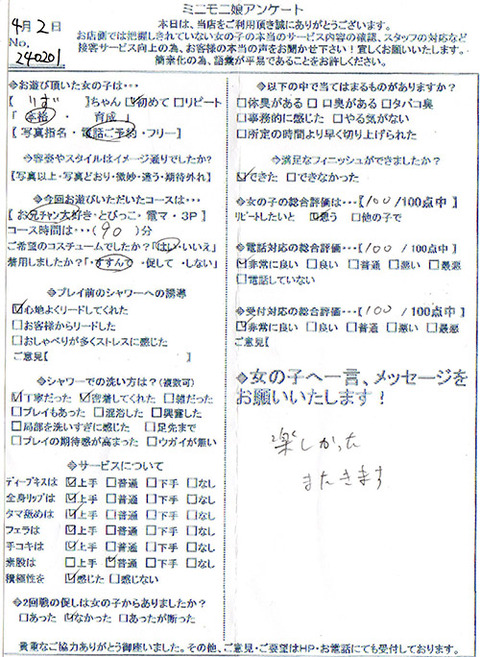 ミニモニ娘アンケート
4月2日
No. 240201
本日は、当店をご利用頂き誠にありがとうございます。
お店側では把握しきれていない女の子の本当のサービス内容の確認、スタッフの対応など
接客サービス向上の為、お客様の本当の声をお聞かせ下さい！宜しくお願いいたします。
簡素化の為、語彙が平易であることをお許しください。
◆お遊び頂いた女の子は…
[ りず ]ちゃん ☑初めて □リピート
[ 本格 ・ 育成 ]
[ 写真指名・電話ご予約・フリー]
◆容姿やスタイルはイメージ通りでしたか?
[写真以上・写真どおり・微妙・違う・期待外れ]
◆今回お遊びいただいたコースは…
[ お兄チャン大好き・とびっこ・電マ・3P ]
コース時間は…( 90 )分
ご希望のコスチュームでしたか?「はい・いいえ」
着用しましたか?「・すすんで ・促して ・しない」
◆プレイ前のシャワーへの誘導
☑心地よくリードしてくれた
□お客様からリードした
□おしゃべりが多くストレスに感じた
ご意見[ ]
◆シャワーでの洗い方は?(複数可)
☑丁寧だった ☑密着してくれた □雑だった
□プレイもあった □混浴した □興奮した
□局部を洗いすぎに感じた □足先まで
□プレイの期待感が高まった □ウガイが無い
◆サービスについて
ディープキスは ☑上手 □普通 □下手 □なし
全身リップは ☑上手 □普通 □下手 □なし
タマ舐めは ☑上手 □普通 □下手 □なし
フェラは ☑上手 □普通 □下手 □なし
手コキは ☑上手 □普通 □下手 □なし
素股は □上手 ☑普通 □下手 □なし
積極性を ☑感じた □感じない
◆2回戦の促しは女の子からありましたか?
□あった ☑なかった □あったが断った
◆以下の中で当てはまるものがありますか?
□体臭がある □口臭がある □タバコ臭
□事務的に感じた □やる気がない
□所定の時間より早く切り上げられた
◆満足なフィニッシュができましたか?
☑できた □できなかった
◆女の子の総合評価は…[100/100点中]
リピートしたいと ☑思う □他の子で
◆電話対応の総合評価…[100/100点中]
☑非常に良い □良い □普通 □悪い □最悪
□電話していない
◆受付対応の総合評価…[100/100点中]
☑非常に良い □良い □普通 □悪い □最悪
ご意見[ ]
◆女の子へ一言、メッセージを
お願いいたします！
楽しかった
またきます
貴重なご協力ありがとう御座いました。その他、ご意見・ご要望はHP・お電話にても受付しております。